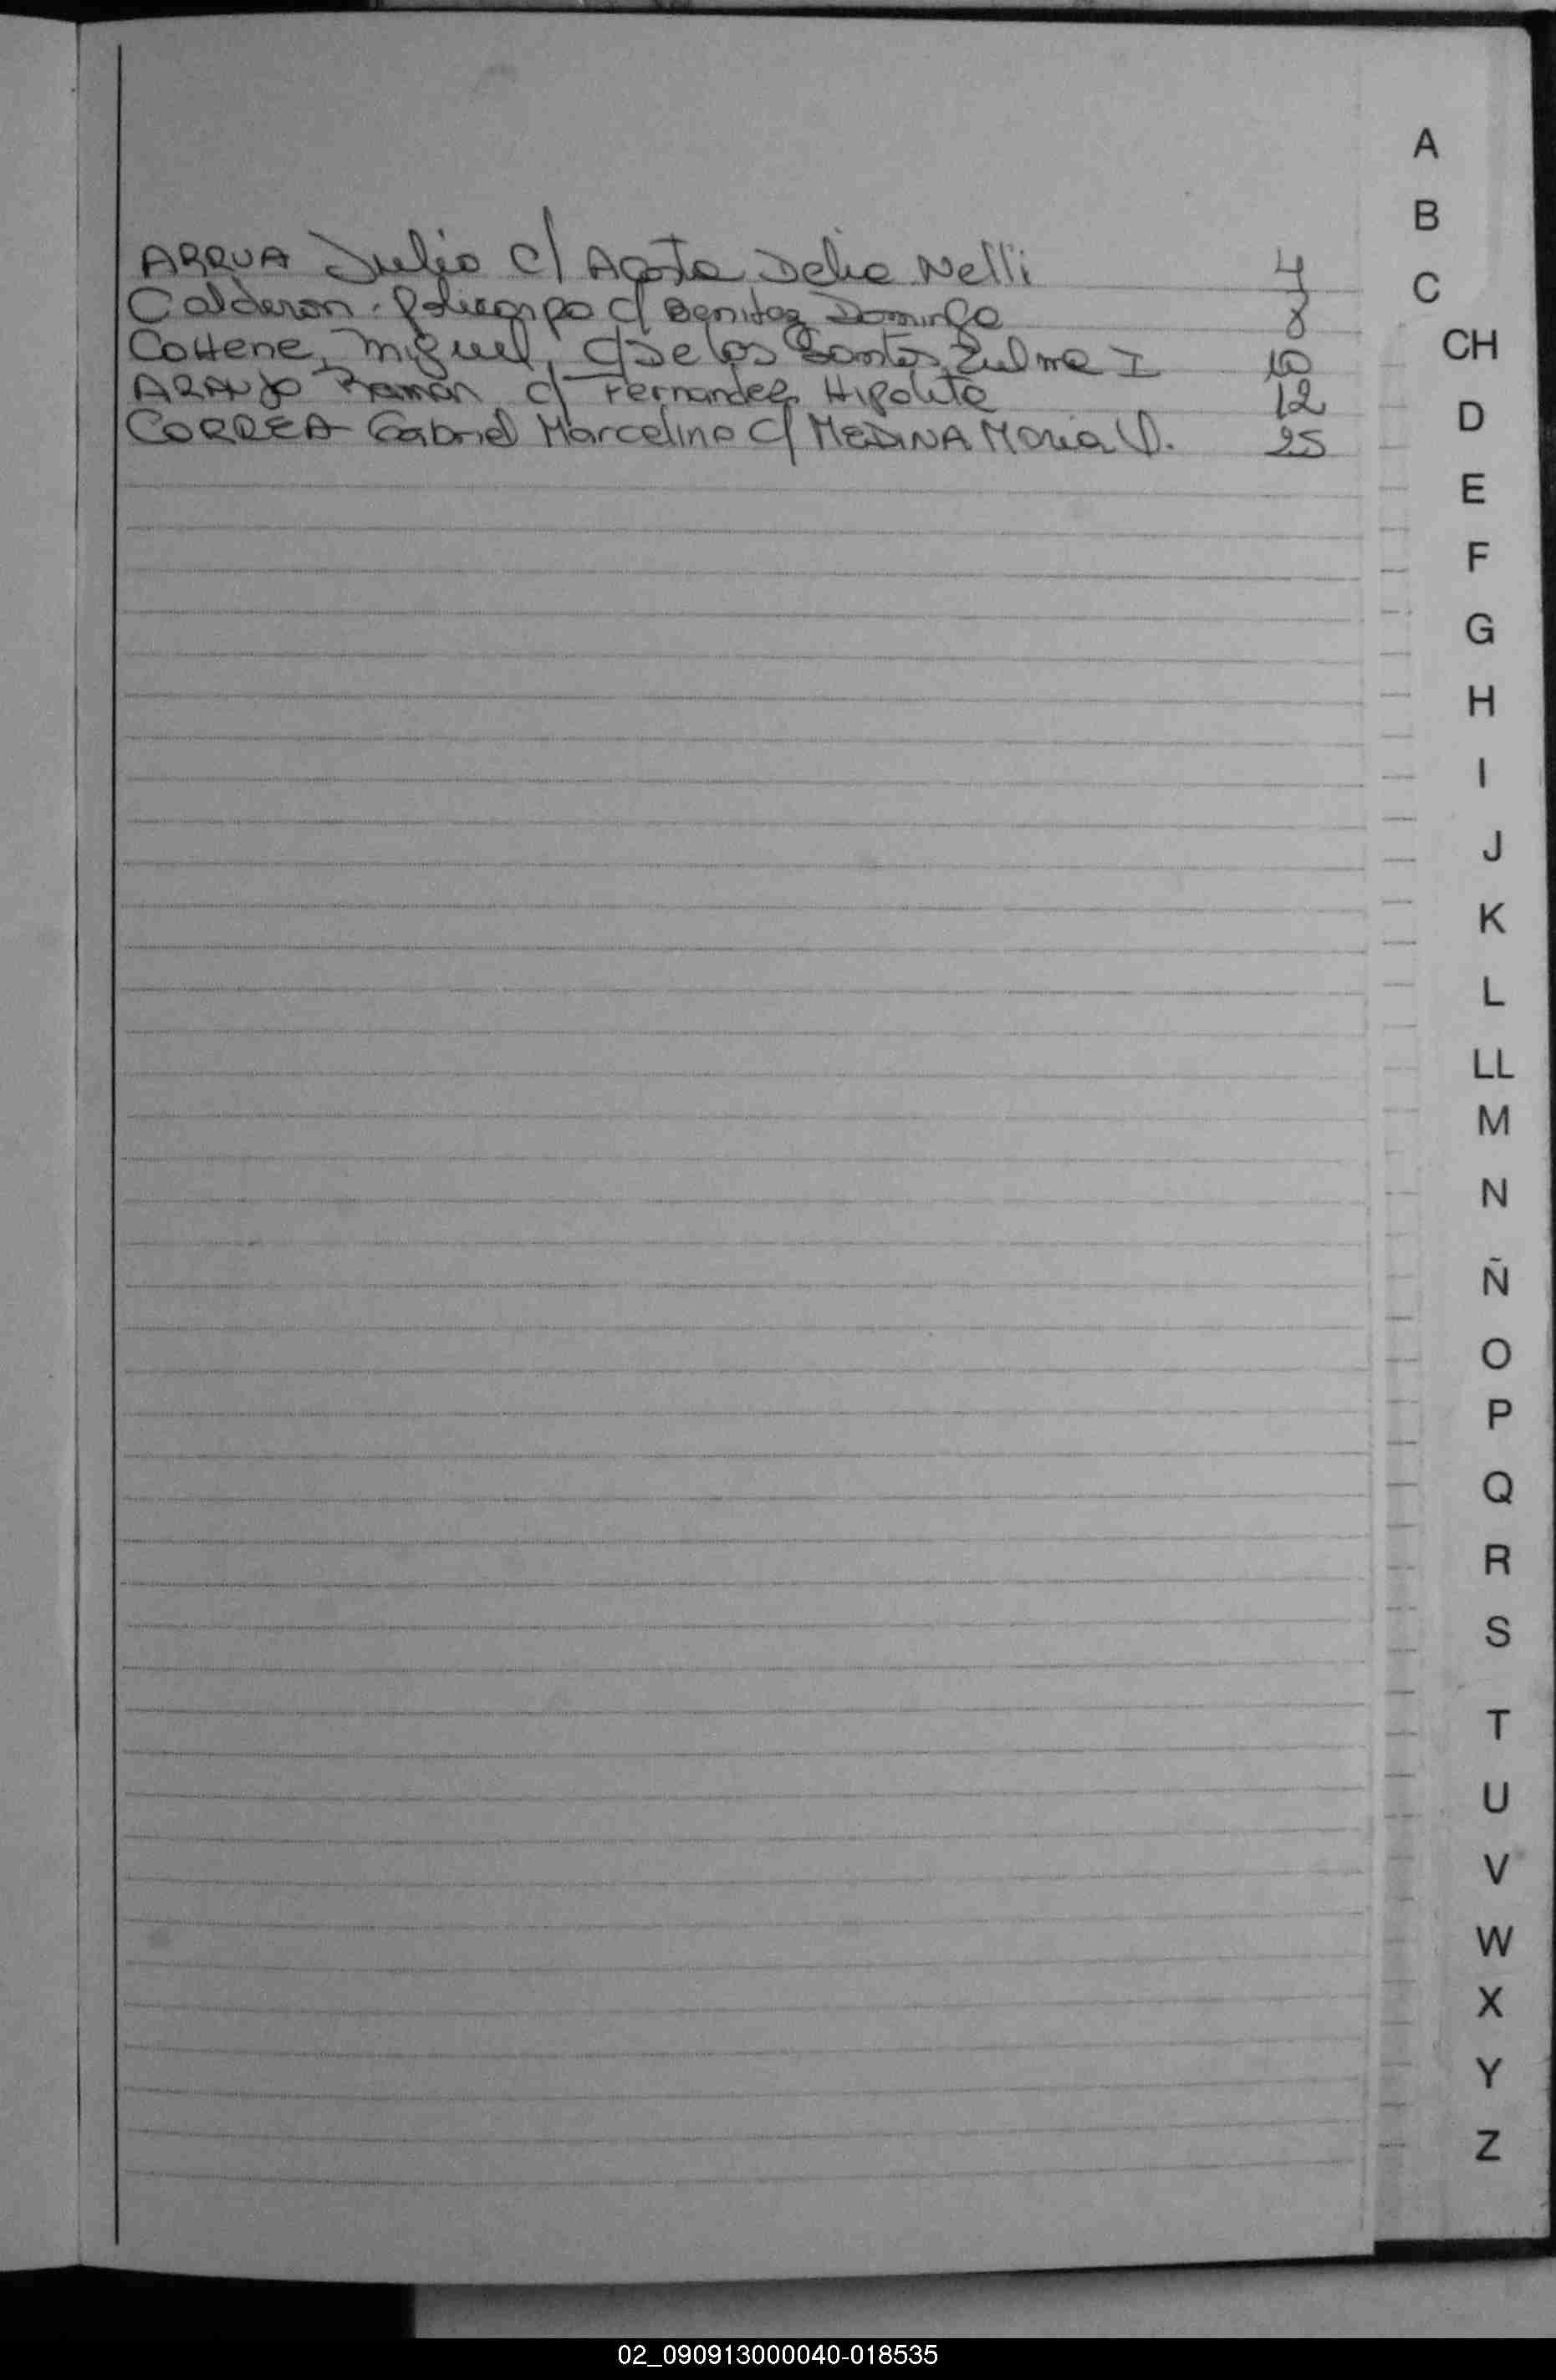 ARRUA Julio c/ Acosta Delia Nelli 4
Calderon Policarpo c/ Benitez Dominga 8
Cottene, Miguel, c/ De los Santos Zulma I 10
ARAUJO Ramón c/ Fernandez Hipolita 12
CORREA Gabriel Marcelino c/ MEDINA Maria V. 25
A
B
C
CH
D
E
F
G
H
I
J
K
L
LL
M
N
Ñ
O
P
Q
R
S
T
U
V
W
X
Y
Z
02_090913000040-018535